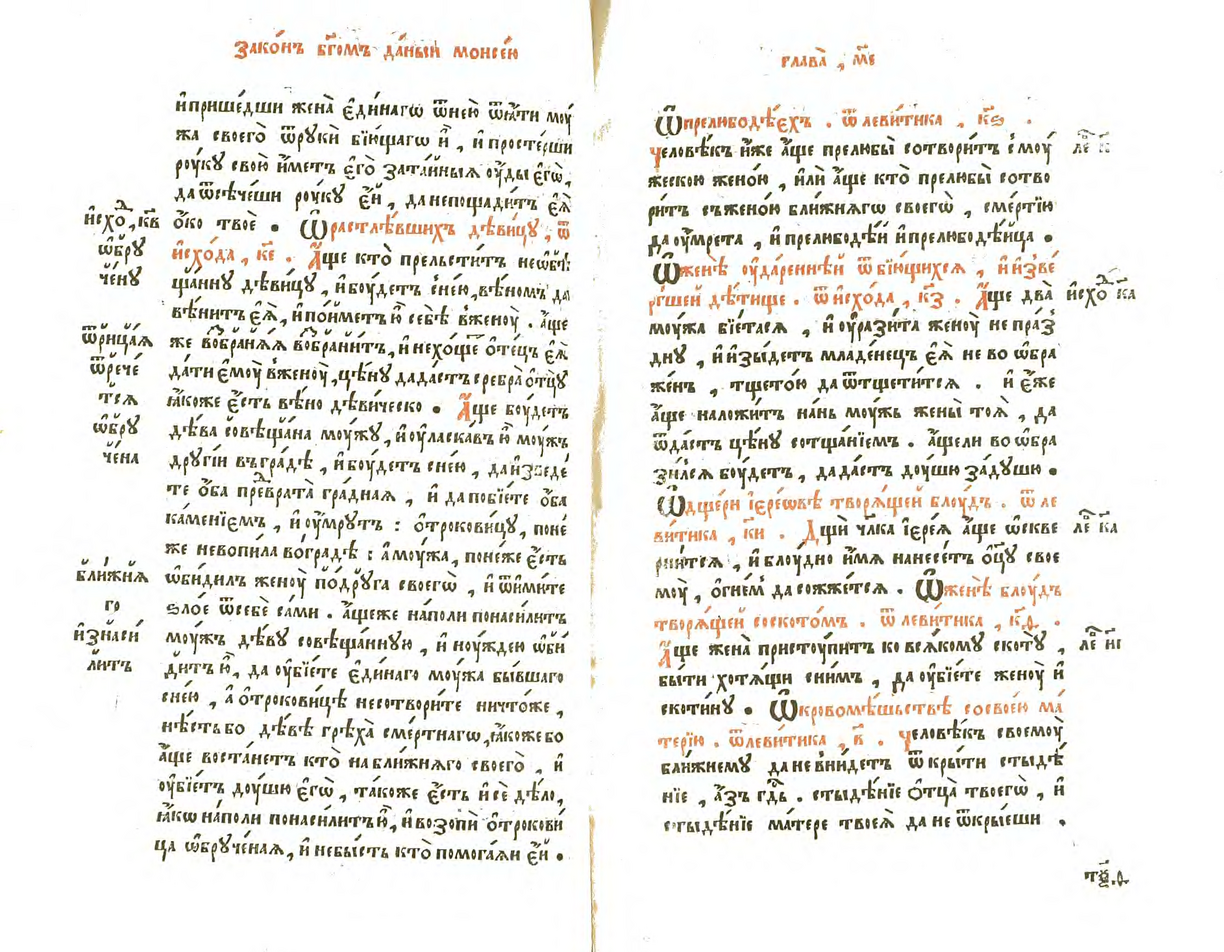 Зако́нъ бг҃омъ да́ный моисе́ю
и҆прише́дши жена̀ є҆ди́нагѡ ѿне́ю ѿꙗ́ти моу́
жа своего̀ ѿрꙋки̑ бїю́щагѡ и҆̀ , и҆просте́рши
роу́кꙋ свою̀ и҆́метъ є҆го̀ зата́йныѧ ѹ҆́ды є҆гѡ̀,
да ѿсѣче́ши роу́кꙋ є҆́й , данепощади́тъ є҆ѧ̀
ѻ҆́ко твоѐ . Ѡ҆растлѣ́вшихъ дѣви́цꙋ , ѿ
и҆схо́да , к҃е . А҆́ще кто̀ прельсти́тъ неѡ҆бѣ
ща́ннꙋ дѣви́цꙋ , и҆боу́детъ сне́ю, вѣ́номъ да
вѣни́тъ є҆ѧ̀, и҆по́йметъ ю҆̀ себѣ̀ вженоу̀ . а҆́ще
же вобранѧ́ѧ вобрани́тъ, и҆нехо́щетъ ѻ҆те́цъ є҆ѧ̀
да́ти є҆моу̀ вженоу̀, цѣ́нꙋ дада́стъ сребра̀ ѻ҆тц꙽ꙋ
ꙗ҆́коже є҆́сть вѣ́но дѣви́ческо . А҆́ще боу́детъ
дѣ́ва совѣща́на моу́жꙋ , и҆ѹ҆ласка́въ ю҆̀ моу́жъ
дрꙋгі́й въгра́дѣ , и҆боу́детъ сне́ю , даи҆зведе́
те ѻ҆́ба превра́та гра́днаѧ , и҆ дапобїе́те ѻ҆́ба
ка́менїемъ , и҆ѹ҆́мрꙋтъ : ѻ҆трокови́цꙋ, поне́
же невопи́ла во́градѣ : а҆моу́жа, поне́же є҆́сть
ѡ҆би́дилъ женоу̀ по́дрꙋга своегѡ̀ , и҆ ѿими́те
ѕло́е ѿсебѐ са́ми . а҆́щеже на́поли понаси́литъ
моу́жъ дѣ́вꙋ совѣща́ннꙋю , и҆ ноу́ждею ѡ҆би
дитъ ю҆̀, да ѹ҆бїе́те є҆ди́наго моу́жа бы́вшаго
сне́ю , а҆ ѻ҆трокови́цѣ несотвори́те ничто́же ,
нѣ́стьбо дѣ́вѣ грѣха̀ сме́ртнагѡ, ꙗ҆́кожебо
а҆́ще воста́нетъ кто̀ набли́жнѧго своего̀ , и҆
ѹ҆бїе́тъ доу́шю є҆гѡ̀ , та́коже є҆́сть и҆сѐ дѣ́ло,
ꙗ҆́кѡ на́поли понаси́литъ ю҆̀, и҆возопи́ ѻ҆трокови́
ца ѡ҆брꙋче́наѧ, и҆ небы́сть кто̀ помога́ѧи є҆́й .
и҆схо́д , к҃в
ѡ҆брꙋ
че́нꙋ
ѿрица́ѧ
ѿрече́
тсѧ
ѡ҆брꙋ
че́на
бли́жнѧ
го
и҆знаси́
литъ
глава̀ , м҃є
Ѡ҆прелюбодѣ́ехъ . ѿ леви́тика , к҃ѕ .
Человѣ́къ и҆́же а҆́ще прелюбы̀ сотвори́тъ смоу́
жескою жено́ю , и҆лѝ а҆́ще кто̀ прелюбы̀ сотво
ри́тъ съжено́ю бли́жнѧгѡ своегѡ̀ , сме́ртїю
да ѹ҆́мрета , и҆прелюбодѣ́й и҆прелюбодѣ́ица .
Ѡ҆женѣ̀ ѹ҆даре́ннѣй ѿ бїю́щихсѧ , и҆и҆зве́
ргшей дѣ́тище . ѿ и҆схо́да , к҃з . А҆́ще два̀
моу́жа бїе́тасѧ , и҆ ѹ҆рази́та женоу̀ не пра́з
днꙋ , и҆и҆зы́детъ младе́нецъ є҆ѧ̀ не во ѡ҆бра
же́нъ , тщето́ю да ѿтщети́тсѧ . и҆ є҆́же
а҆́ще наложи́тъ на́нь моу́жь жены̀ тоѧ̀ , да
ѿда́стъ цѣ́нꙋ сотща́нїемъ . а҆́щели во ѡ҆бра
зи́лсѧ боу́детъ , дада́стъ доу́шю за́дꙋшю .
Ѡ҆дще́ри і҆ере́ѡвѣ творѧ́щей блоу́дъ . ѿ ле
ви́тика , к҃и . Дщѝ чл҃ка і҆ере́ѧ а҆́ще ѡ҆скве
рни́тсѧ , и҆ блоу́дно и҆́мѧ нанесе́тъ ѻ҆ц҃ꙋ свое
моу̀ , ѻ҆гне́м да сожже́тсѧ . Ѡ҆женѣ̀ блоу́дъ
творѧ́щей соското́мъ . ѿ леви́тика , к҃ѳ .
А҆́ще жена̀ пристоу́питъ ко всѧ́комꙋ скотꙋ̀ ,
бы́ти хотѧ́щи сни́мъ , да ѹ҆бїе́те женоу̀ и҆
скоти́нꙋ . Ѡ҆кровомѣ́шьствѣ сосвое́ю ма́
терїю . ѿлеви́тика , к҃ . Человѣ́къ своемоу̀
бли́жнемꙋ да не вни́детъ ѿкры́ти стыдѣ́
нїе , а҆́зъ гд҃ь . стыдѣ́нїе ѻ҆тца̀ твоегѡ̀ , и҆
стыдѣ́нїе ма́тере твоеѧ̀ да не ѿкры́еши .
ле҃ к҃
и҆схо́д к҃а
ле҃ к҃а
ле҃ и҃і